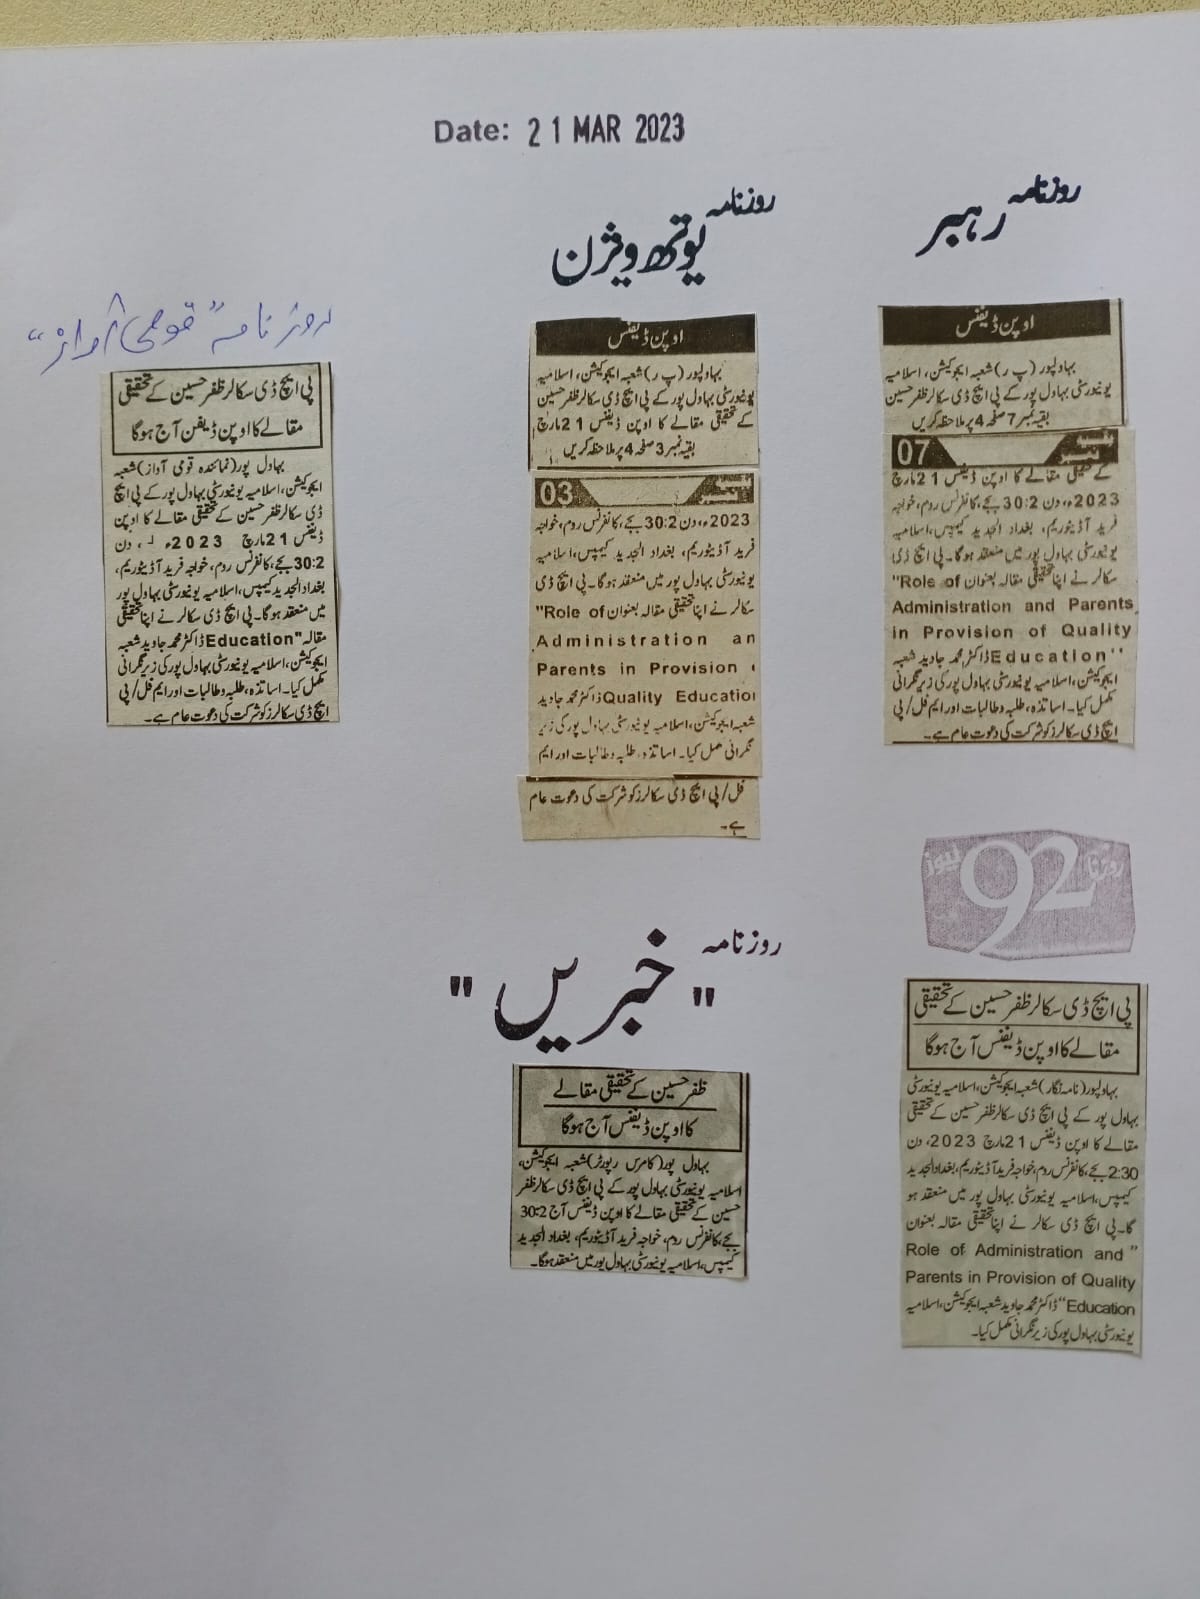 Date: 21 MAR 2023
روزنامہ
رہبر
اوپن ڈیفنس
بہاولپور (پ ر) شعبہ ایجوکیشن، اسلامیہ
یونیورسٹی بہاول پور کے پی ایچ ڈی سکالر ظفر حسین
بقیہ نمبر 7 صفحہ 4 پر ملاحظہ کریں
بقیہ نمبر 07
کے تحقیقی مقالے کا اوپن ڈیفنس 21 مارچ
2023ء، دن 30:2 بجے، کانفرنس روم، خواجہ
فرید آڈیٹوریم، بغداد الجدید کیمپس، اسلامیہ
یونیورسٹی بہاول پور میں منعقد ہوگا۔ پی ایچ ڈی
سکالر نے اپنا تحقیقی مقالہ بعنوان "Role of
Administration and Parents
in Provision of Quality
Education'' ڈاکٹر محمد جاوید شعبہ
ایجوکیشن، اسلامیہ یونیورسٹی بہاول پور کی زیر نگرانی
مکمل کیا۔ اساتذہ، طلبہ و طالبات اور ایم فل/ پی
ایچ ڈی سکالرز کو شرکت کی دعوت عام ہے۔
روزنامہ
یوتھ ویژن
اوپن ڈیفنس
بہاولپور (پ ر) شعبہ ایجوکیشن، اسلامیہ
یونیورسٹی بہاول پور کے پی ایچ ڈی سکالر ظفر حسین
کے تحقیقی مقالے کا اوپن ڈیفنس 21 مارچ
بقیہ نمبر 3 صفحہ 4 پر ملاحظہ کریں
بقیہ نمبر 03
2023ء، دن 30:2 بجے، کانفرنس روم، خواجہ
فرید آڈیٹوریم، بغداد الجدید کیمپس، اسلامیہ
یونیورسٹی بہاول پور میں منعقد ہوگا۔ پی ایچ ڈی
سکالر نے اپنا تحقیقی مقالہ بعنوان "Role of
Administration an
Parents in Provision
Quality Educatio ڈاکٹر محمد جاوید
شعبہ ایجوکیشن، اسلامیہ یونیورسٹی بہاول پور کی زیر
نگرانی مکمل کیا۔ اساتذہ، طلبہ و طالبات اور ایم
فل/ پی ایچ ڈی سکالرز کو شرکت کی دعوت عام
ہے۔
روزنامہ "قومی آواز"
پی ایچ ڈی سکالر ظفر حسین کے تحقیقی
مقالے کا اوپن ڈیفن آج ہوگا
بہاول پور (نمائندہ قومی آواز) شعبہ
ایجوکیشن، اسلامیہ یونیورسٹی بہاول پور کے پی ایچ
ڈی سکالر ظفر حسین کے تحقیقی مقالے کا اوپن
ڈیفنس 21 مارچ 2023ء، دن
30:2 بجے، کانفرنس روم، خواجہ فرید آڈیٹوریم،
بغداد الجدید کیمپس، اسلامیہ یونیورسٹی بہاول پور
میں منعقد ہوگا۔ پی ایچ ڈی سکالر نے اپنا تحقیقی
مقالہ "Education ڈاکٹر محمد جاوید شعبہ
ایجوکیشن، اسلامیہ یونیورسٹی بہاول پور کی زیر نگرانی
مکمل کیا۔ اساتذہ، طلبہ و طالبات اور ایم فل/ پی
ایچ ڈی سکالرز کو شرکت کی دعوت عام ہے۔
روزنامہ 92 نیوز
پی ایچ ڈی سکالر ظفر حسین کے تحقیقی
مقالے کا اوپن ڈیفنس آج ہوگا
بہاولپور (نامہ نگار) شعبہ ایجوکیشن، اسلامیہ یونیورسٹی
بہاول پور کے پی ایچ ڈی سکالر ظفر حسین کے تحقیقی
مقالے کا اوپن ڈیفنس 21 مارچ 2023، دن
2:30 بجے، کانفرنس روم، خواجہ فرید آڈیٹوریم، بغداد الجدید
کیمپس، اسلامیہ یونیورسٹی بہاول پور میں منعقد ہو
گا۔ پی ایچ ڈی سکالر نے اپنا تحقیقی مقالہ بعنوان
Role of Administration and "
Parents in Provision of Quality
Education" ڈاکٹر محمد جاوید شعبہ ایجوکیشن، اسلامیہ
یونیورسٹی بہاول پور کی زیر نگرانی مکمل کیا۔
روزنامہ
"خبریں"
ظفر حسین کے تحقیقی مقالے
کا اوپن ڈیفنس آج ہوگا
بہاول پور (کامرس رپورٹر) شعبہ ایجوکیشن،
اسلامیہ یونیورسٹی بہاول پور کے پی ایچ ڈی سکالر ظفر
حسین کے تحقیقی مقالے کا اوپن ڈیفنس آج 30:2
بجے، کانفرنس روم، خواجہ فرید آڈیٹوریم، بغداد الجدید
کیمپس، اسلامیہ یونیورسٹی بہاول پور میں منعقد ہوگا۔